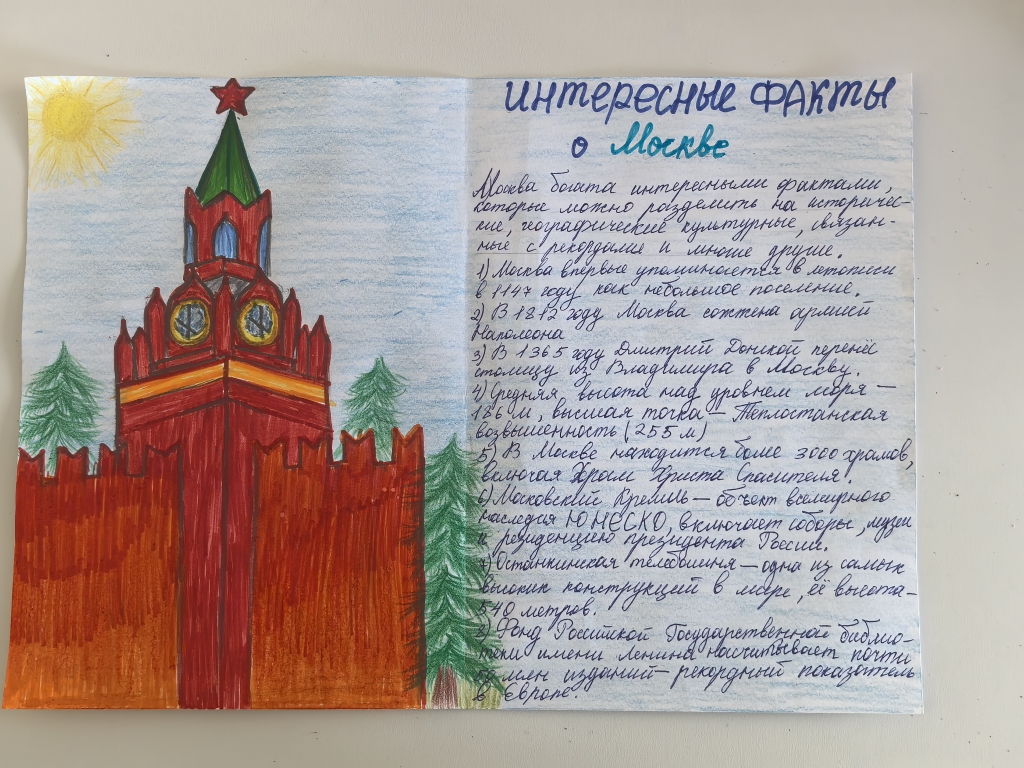 ИНТЕРЕСНЫЕ ФАКТЫ
о Москве
Москва богата интересными фактами,
которые можно разделить на историчес-
кие, географические культурные, связан-
ные с рекордами и многие другие.
1) Москва впервые упоминается в летописи
в 1147 году как небольшое поселение.
2) В 1812 году Москва сожжена армией
Наполеона
3) В 1365 году Дмитрий Донской перенёс
столицу из Владимира в Москву.
4) Средняя высота над уровнем моря —
186 м, высшая точка — Теплостанская
возвышенность (255 м)
5) В Москве находится более 3000 храмов,
включая Храм Христа Спасителя.
6) Московский Кремль — объект всемирного
наследия ЮНЕСКО, включает соборы, музеи
и резиденцию президента России.
7) Останкинская телебашня — одна из самых
высоких конструкций в мире, её высота —
540 метров.
8) Фонд Российской Государственной библио-
теки имени Ленина насчитывает почти
млн изданий — рекордный показатель
в Европе.